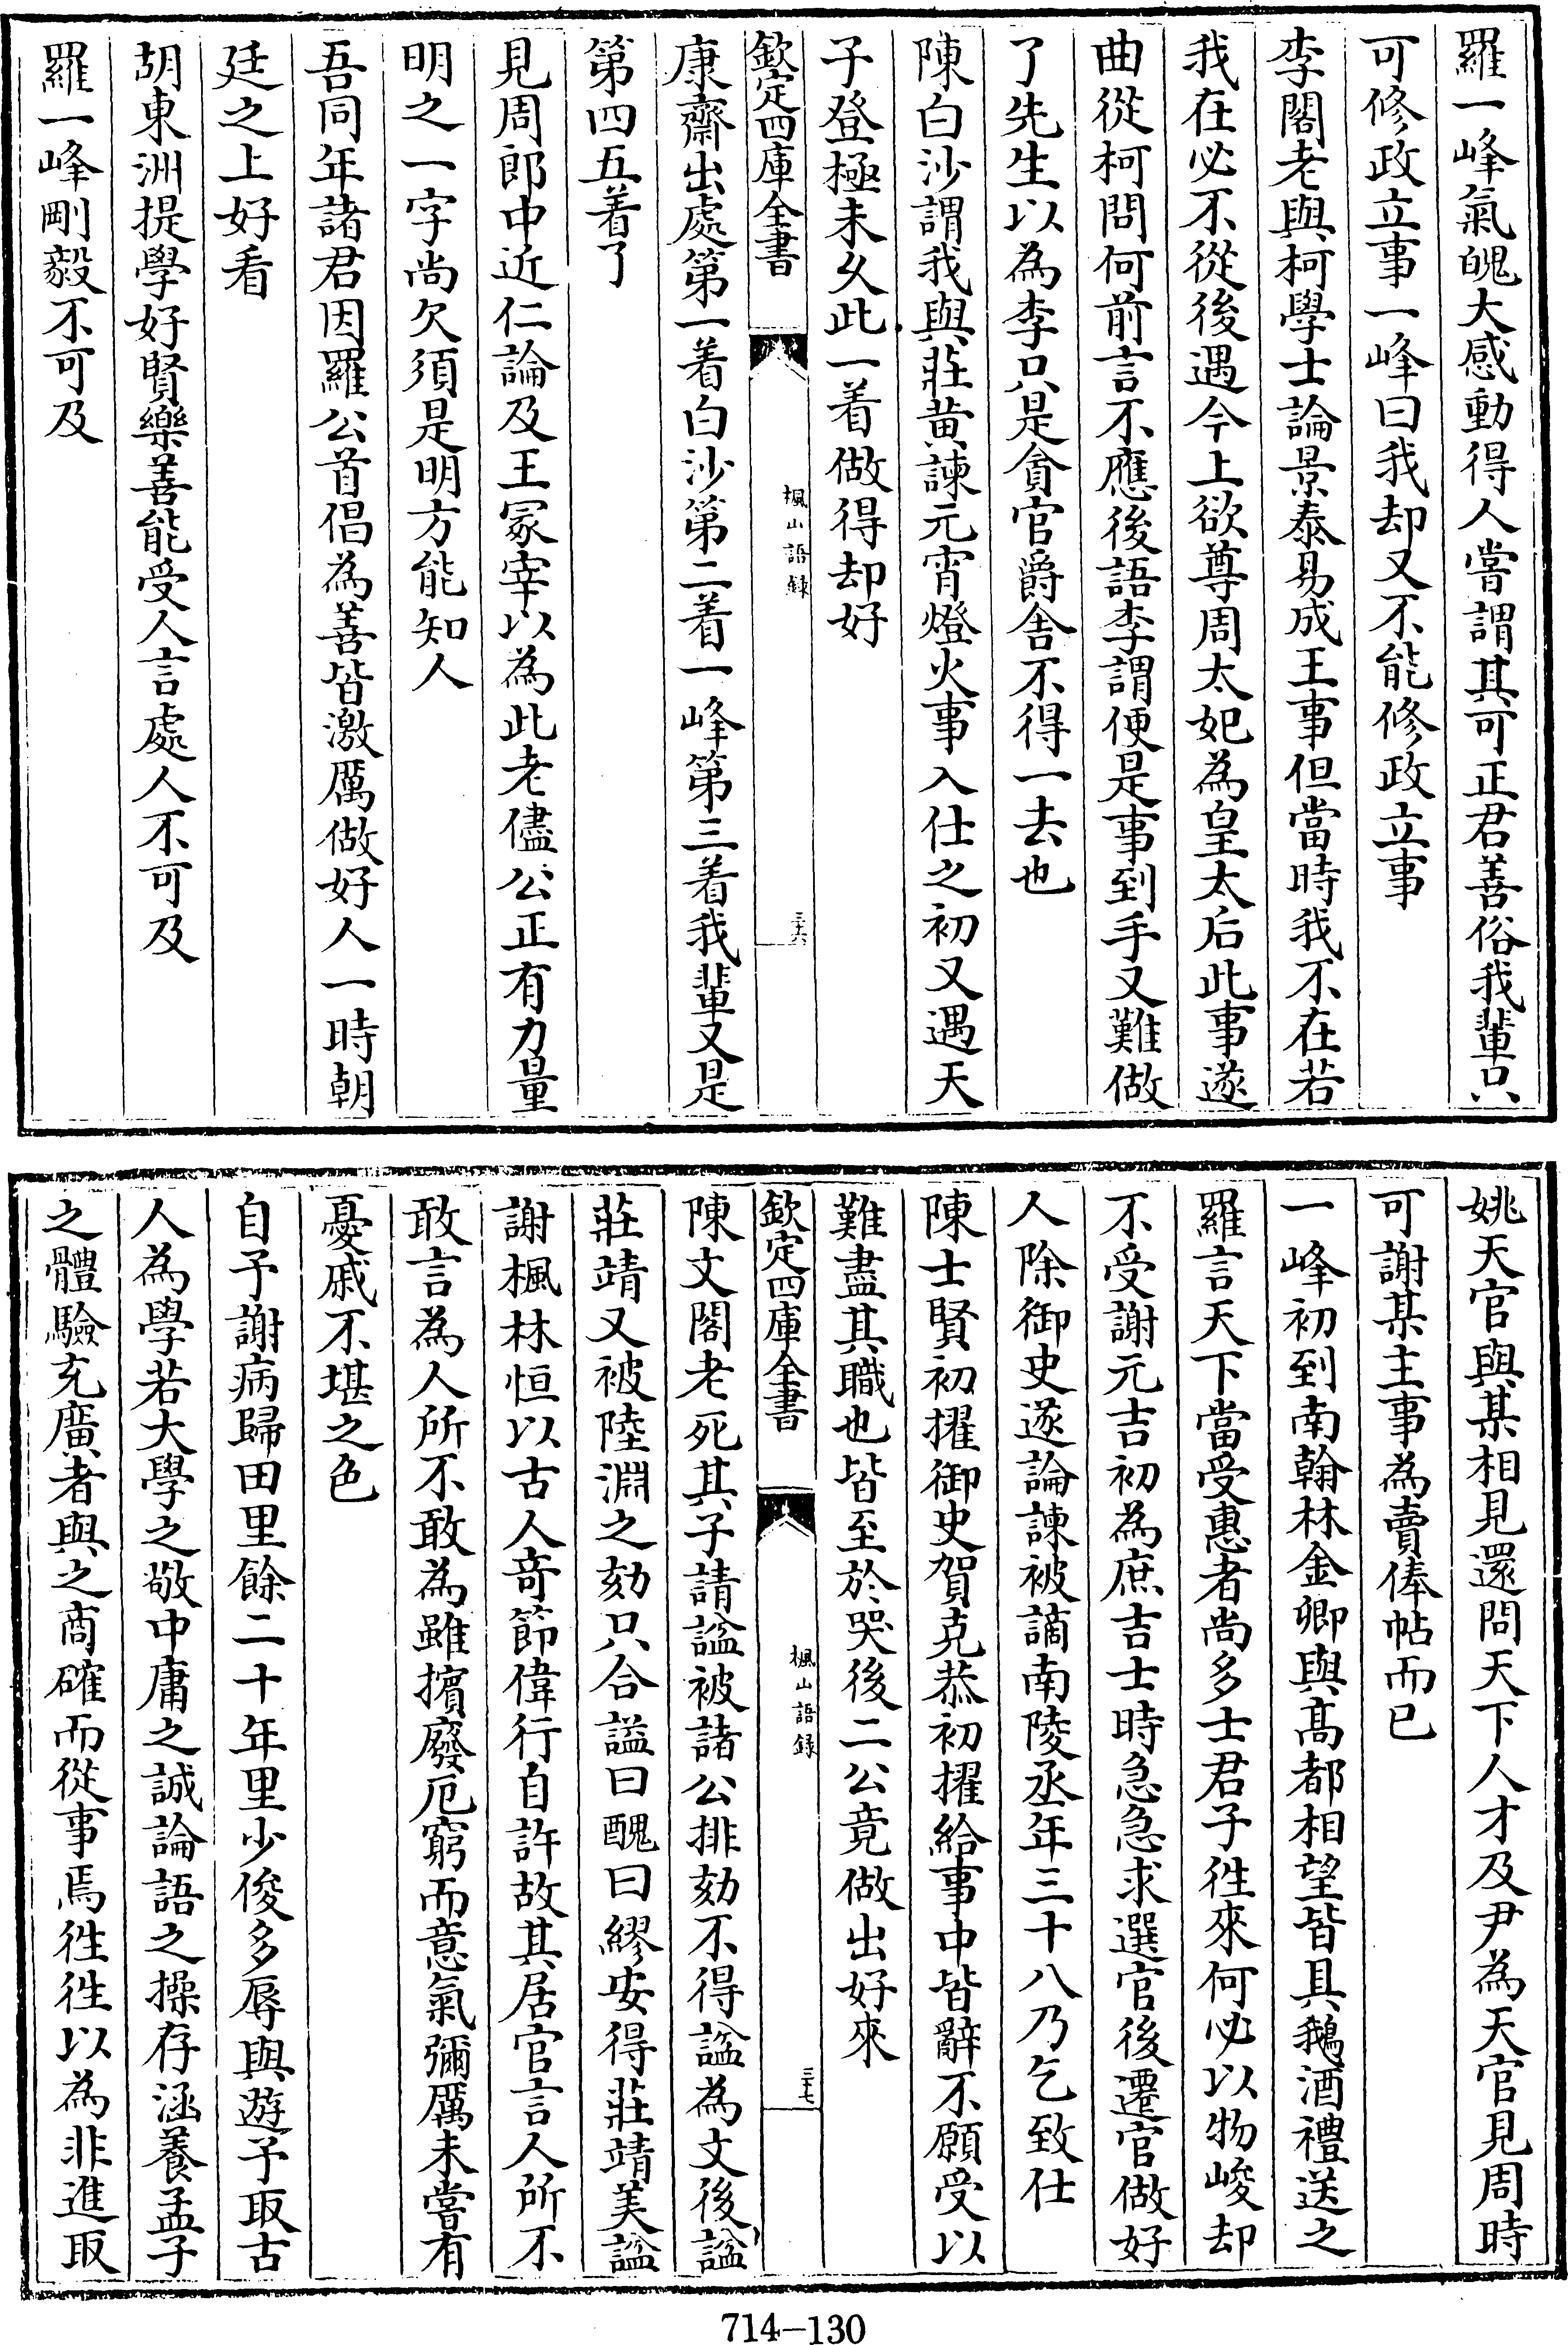 羅一峰氣魄大感動得人嘗謂其可正君善俗我輩只
可修政立事一峰曰我却又不能修政立事
李閣老與柯學士論景泰易成王事但當時我不在若
我在必不從後遇今上欲尊周太妃為皇太后此事遂
曲從柯問何前言不應後語李謂便是事到手又難做
了先生以為李只是貪官爵舍不得一去也
陳白沙謂我與莊黄諫元宵燈火事入仕之初又遇天
子登極未久此一着做得却好
欽定四庫全書
楓山語録
三十六
康齋出處第一着白沙第二着一峰第三着我輩又是
第四五着了
見周郎中近仁論及王冢宰以為此老儘公正有力量
明之一字尚欠須是明方能知人
吾同年諸君因羅公首倡為善皆激厲做好人一時朝
廷之上好看
胡東洲提學好賢樂善能受人言處人不可及
羅一峰剛毅不可及
姚天官與某相見還問天下人才及尹為天官見周時
可謝某主事為賣俸帖而已
一峰初到南翰林金卿與髙都相望皆具鵝酒禮送之
羅言天下當受惠者尚多士君子徃來何必以物峻却
不受謝元吉初為庶吉士時急急求選官後遷官做好
人除御史遂論諫被謫南陵丞年三十八乃乞致仕
陳士賢初擢御史賀克恭初擢給事中皆辭不願受以
難盡其職也皆至於哭後二公竟做出好來
欽定四庫全書
楓山語録
三十七
陳文閣老死其子請諡被諸公排劾不得諡為文後諡
莊靖又被陸淵之劾只合謚曰醜曰繆安得莊靖美諡
謝楓林恒以古人奇節偉行自許故其居官言人所不
敢言為人所不敢為雖擯廢厄窮而意氣彌厲未嘗有
憂戚不堪之色
自予謝病歸田里餘二十年里少俊多辱與遊予取古
人為學若大學之敬中庸之誠論語之操存涵養孟子
之體驗充廣者與之商確而從事焉徃徃以為非進取
714-130